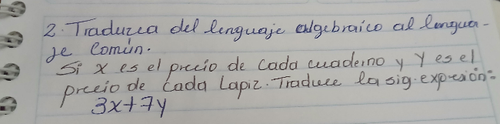 2. Traduzca del lenguaje algebraico al lengua-
je Común.
Si x es el precio de cada cuaderno y Y es el
precio de Cada Lapiz. Traduce la sig. expresión:
3x+7y